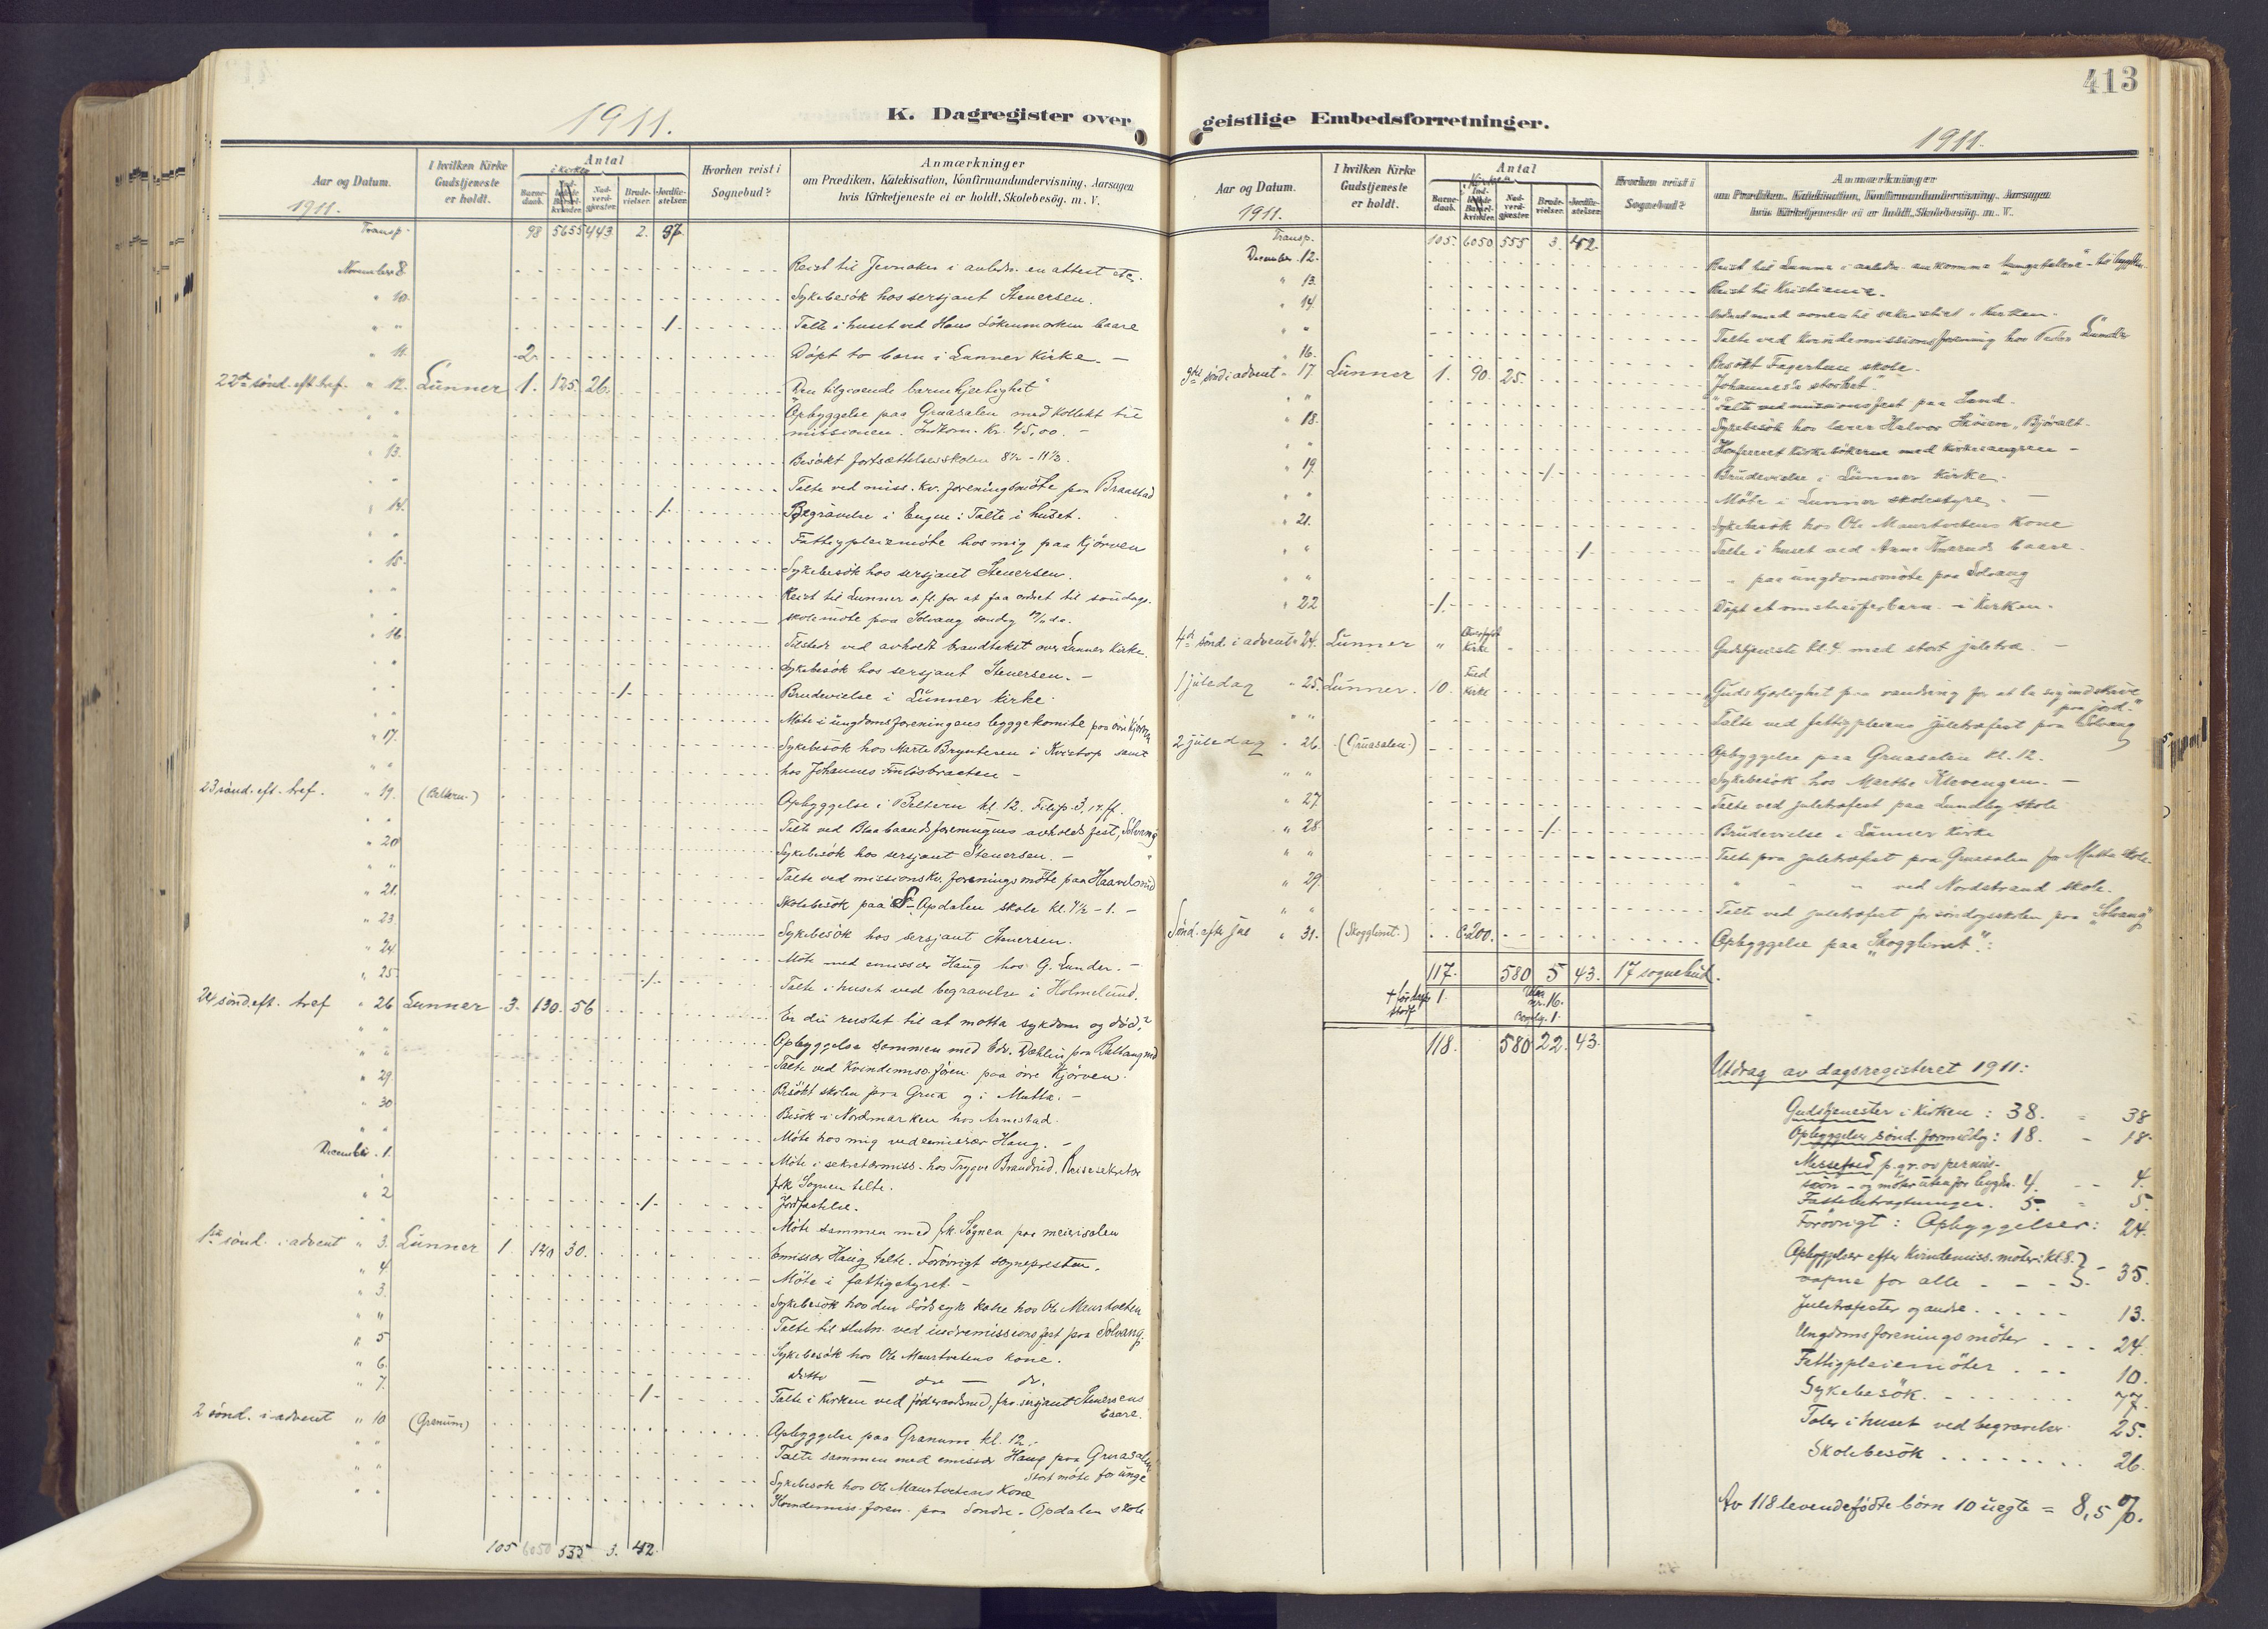 1911.
K. Dagregister over
Aar og Datum.
1911.
I hvilken Kirke
Gudstjeneste
er holdt.
Antal
i Kirken
Barne-
daab.
Ind-
ledede
Barsel-
kvinder.
Nad-
verd-
gjæster.
Brude-
vielser.
Jordfæ-
stelser.
Hvorhen reist i
Sognebud?
Anmærkninger
om Prædiken, Katekisation, Konfirmandundervisning, Aarsagen
hvis Kirketjeneste ei er holdt, Skolebesög. m. V.
Transp. 98 5655 443 2. 37
November 8. Reist til Jevnaker i anledn. en attest etc.
" 10. Sykebesök hos sersjant Stenersen.
" " 1. Talte i huset ved Hans Lökenmarken baare
" 11. 2. Döpt to barn i Lunner kirke. —
22de sönd. eft. tref. " 12. Lunner 1. 125 26. "Den tilgivende barmhjertighet"
" Opbyggelse paa Gruasalen med kollekt til
missionen. Indkom. Kr. 45,00. —
" 13. Besökt fortsættelsesskolen 8½ - 11½.
" Talte ved miss. kv. foreningsmöte paa Braastad
" 14. 1. Begravelse i Engen: Talte i huset.
" Fattigpleiemöte hos mig paa Kjörven
" 15. Sykebesök hos sersjant Stenersen.
" Reist til Lunner o. fl. for at faa ordnet til söndags-
skolemöte paa Solvang sondag
" 16. Tilstede ved avholdt brandtakst over Lunner kirke.
" " Sykebesök hos sersjant Stenersen. —
" " 1. Brudevielse i Lunner kirke.
" Möte i ungdomsforeningens byggekomite paa
" 17. Sykebesök hos Marte Bryntesen i Kvistop samt
" " hos Johannes Finlösbraaten —
23 sönd. eft. tref. " 19. (Beltern.) Opbyggelse i Beltern kl. 12. Filip. 3, 17. ff.
" " Talte ved Blaabaandsforeningens avholds fest, Solvang
" 20 Sykebesök hos sersjant Stenersen. —
" " Talte ved missionskv. forenings möte paa Haavelsrud
" 21. Skolebesök paa S. Opdalen skole kl. 9½ - 1. —
" 23 Sykebesök hos sersjant Stenersen.
" 24 Möte med emissær Haug hos G. Lunder. —
" 25 1. Talte i huset ved begravelse i Holmelund.
24 sönd. eft. tref " 26 Lunner 3. 130 56 Er du rustet til at motta sykdom og död?
" " Opbyggelse sammen med Edv. Dæhlin paa Ballangrud
" " Talte ved Kvindemiss. foren. paa övre Kjörven.
" 29 Besökt skolen paa Grua og i Mutta. —
" 30 Besök i Nordmarken hos Arnestad.
" " Möte hos mig ved emissær Haug. —
December 1. Möte i sekretærmiss. hos Trygve Brandrud. Reisesekretær
frk Sognen talte.
" 2 1. Jordfæstelse.
" Möte sammen med frk. Sognen paa meierisalen
1ste sönd. i advent " 3. Lunner 1. 120 30. Emissær Haug talte. Forövrigt sognepresten.
" 4 Möte i fattigstyret. —
" 3. Sykebesök hos den dödssyk kone hos Ole Maurtveten
" " Talte til slutn. ved indremissionsfest paa Solvang.
" 5 Sykebesök hos Ole Maurtvetens kone.
" 6. ditto — do — do.
" 7. 1. Talte i kirken ved sersjant Stenersens
baare.
2 sönd. i advent " 10 (Granum) Opbyggelse paa Granum kl. 12.
" " Talte sammen med emissær Haug paa Gruasalen
Stort möte for unge
" " Sykebesök hos Ole Maurtvetens kone
" " Kvindemiss. foren. paa Söndre Opdalen skole
105 6050 555 3. 42.
413
geistlige Embedsforretninger.
1911.
Aar og Datum.
1911.
I hvilken Kirke
Gudstjeneste
er holdt.
Antal
i Kirken
Barne-
daab.
Ind-
ledede
Barsel-
kvinder.
Nad-
verd-
gjæster.
Brude-
vielser.
Jordfæ-
stelser.
Hvorhen reist i
Sognebud?
Anmærkninger
om Prædiken, Katekisation, Konfirmandundervisning, Aarsagen
hvis Kirketjeneste ei er holdt, Skolebesög. m. V.
Transp. 105. 6050 555 3. 42.
December 12. Reist til Lunner i anledn. ankomne "tungetalere" til bygden.
" 13. Reist til Kristiania.
" 14. Ordnet med ovnen til sakristiet i kirken.
" " Talte ved kvindemissionsforening hos Peder Lunder
" 16. Besökt Fagerlund skole.
3die sönd i advent " 17. Lunner 1. 90. 25. "Johannes's storhet".
" " Talte ved missionsfest paa Land.
" 18. Sykebesök hos lærer Halvor Sköien, Björalt.
" " Konferert kirkesökerne med kirkesangeren —
" 19. 1. Brudevielse i Lunner kirke.
" " Möte i Lunner skolestyre. —
" 21. Sykebesök hos Ole Maurtvetens kone
" " 1. Talte i huset ved Anne baare.
" " " paa ungdomsmöte paa Solvang
" 22 1. Döpt et omstreiferbarn i kirken.
4de sönd. i advent " 24. Lunner " Overfyldt
kirke " Gudstjeneste kl. 4. med stort juletræ. —
1 juledag " 25. Lunner. 10. Fuld
kirke "Guds kjærlighet paa vandring for at la sig indskrive
paa jord."
" " Talte ved fattigpleiens juletræfest paa Solvang
2 juledag " 26. (Gruasalen.) Opbyggelse paa Gruasalen kl. 12.
" " Sykebesök hos Marthe Klevengen. —
" 27. Talte ved juletræfest paa Lundby skole
" 28 1. Brudevielse i Lunner kirke
" " Talte paa juletræfest paa Gruasalen for Mutta skole.
" 29. " " " ved Nordstrand skole.
" " Talte ved juletræfest for söndagsskolen paa "Solvang"
Sönd. efter jul " 31. (Skogglimt.) C. 200. Opbyggelse paa "Skogglimt":
117. 580 5 43. 17 sognebud.
1. 16.
1.
118. 580 22. 43.
Utdrag av dagsregisteret 1911:
Gudstjenester i kirken: 38. = 38
Opbyggelser sönd. formiddag: 18. - 18.
Messefald p. gr. av permis-
sion - og möter utenfor bygden. 4. - - 4.
Fastebetragtninger. 5. = 5.
Forövrigt: Opbyggelser: 24.
Opbyggelser efter kvindemiss. möter: kl. 8. }
aapne for alle - - - } - 35.
Juletræfester og andre . . . . . 13.
Ungdomsforenings möter . . . 24.
Fattigpleiemöter . . . 10.
Sykebesök. . . . . . . 77.
Taler i huset ved begravelser 25.
Skolebesök . . . . . . . . 26.
Av 118 levendefödte börn 10 uegte = 8,5 %.